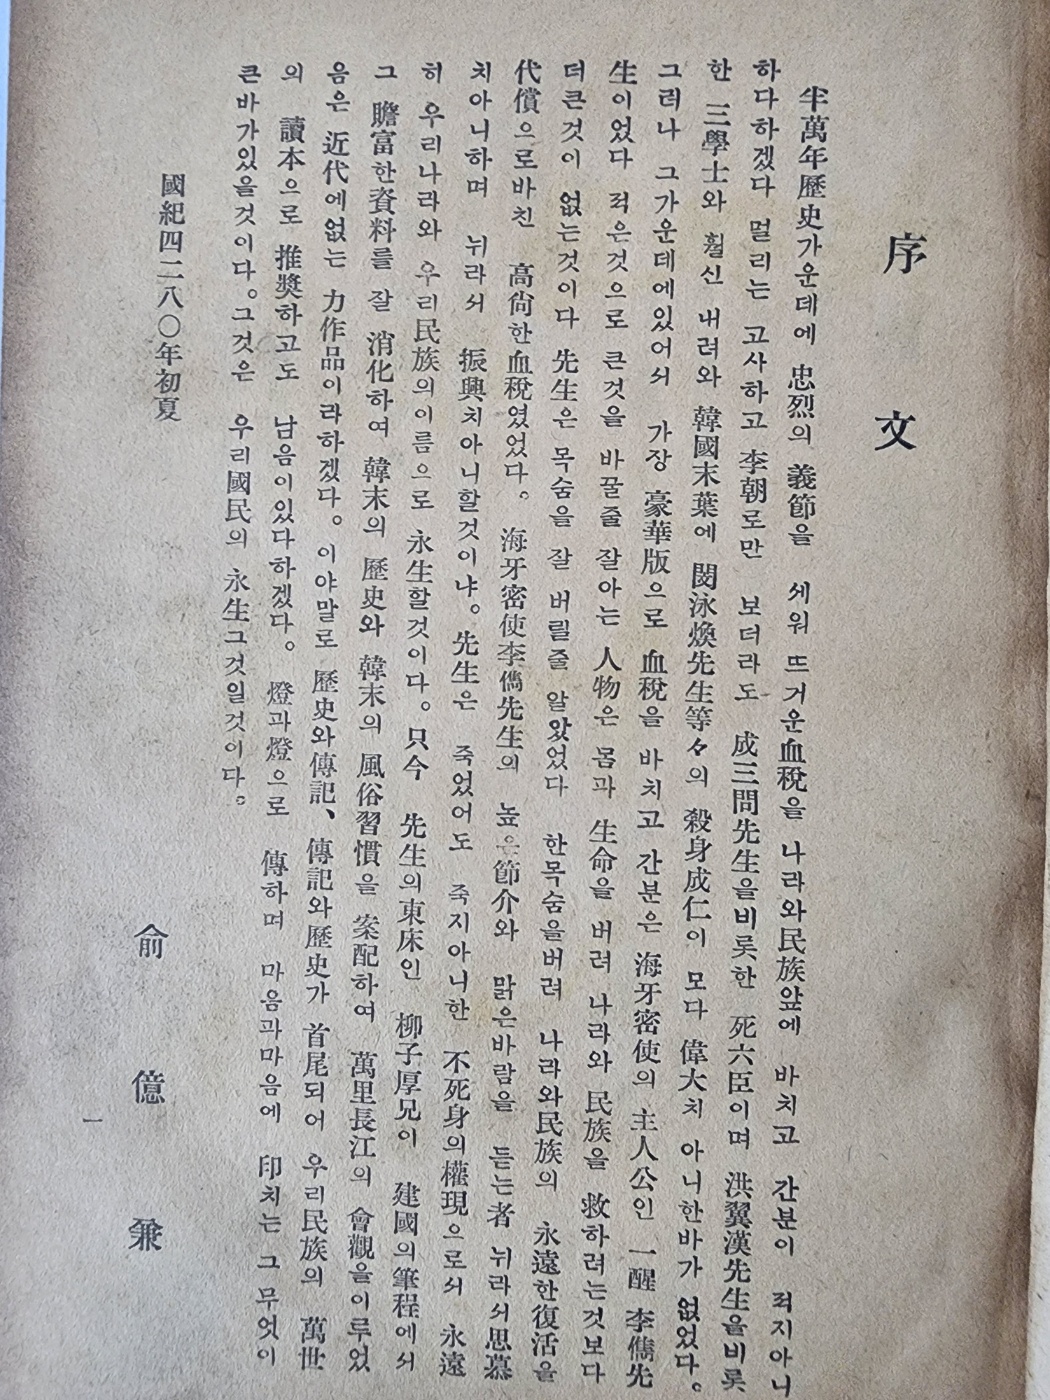 序文
半萬年歷史가운데에 忠烈의 義節을 세워 뜨거운血稅을 나라와民族앞에 바치고 간분이 적지아니
하다하겠다 멀리는 고사하고 李朝로만 보더라도 成三問先生을비롯한 死六臣이며 洪翼漢先生을비롯
한 三學士와 훨신 내려와 韓國末葉에 閔泳煥先生等々의 殺身成仁이 모다 偉大치 아니한바가 없었다。
그러나 그가운데에있어서 가장 豪華版으로 血稅을 바치고 간분은 海牙密使의 主人公인 一醒 李儁先
生이었다 적은것으로 큰것을 바꿀줄 잘아는 人物은 몸과 生命을 버려 나라와 民族을 救하려는것보다
더큰것이 없는것이다 先生은 목숨을 잘 버릴줄 알았었다 한목숨을버려 나라와民族의 永遠한復活을
代償으로바친 高尙한血稅였었다。 海牙密使李儁先生의 높은節介와 맑은바람을 듣는者 뉘라서思慕
치아니하며 뉘라서 振興치아니할것이냐。先生은 죽었어도 죽지아니한 不死身의權現으로서 永遠
히 우리나라와 우리民族의이름으로 永生할것이다。只今 先生의東床인 柳子厚兄이 建國의筆程에서
그 贍富한資料를 잘 消化하여 韓末의 歷史와 韓末의 風俗習慣을 案配하여 萬里長江의 會觀을이루었
음은 近代에없는 力作品이라하겠다。이야말로 歷史와傳記、傳記와歷史가 首尾되어 우리民族의 萬世
의 讀本으로 推奬하고도 남음이있다하겠다。 燈과燈으로 傳하며 마음과마음에 印치는 그 무엇이
큰바가있을것이다。그것은 우리國民의 永生그것일것이다。
國紀四二八〇年初夏
俞億兼
一